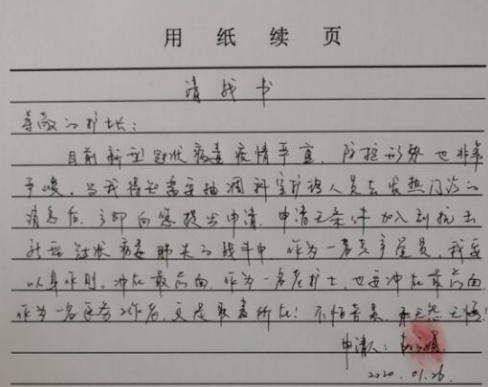 用纸续页
请战书
尊敬的护士长：
目前新型冠状病毒疫情严重，防控形势也非常
严峻。当我得知需要抽调科室护理人员去发热门诊的
消息后，立即向您提出申请，申请无条件加入到抗击
新型冠状病毒肺炎的战斗中，作为一名共产党员，我要
以身作则，冲在最前面，作为一名老护士，也要冲在最前面
作为一名医务工作者，更是职责所在！不怕苦累，无怨无悔！
申请人：
2020.01.26